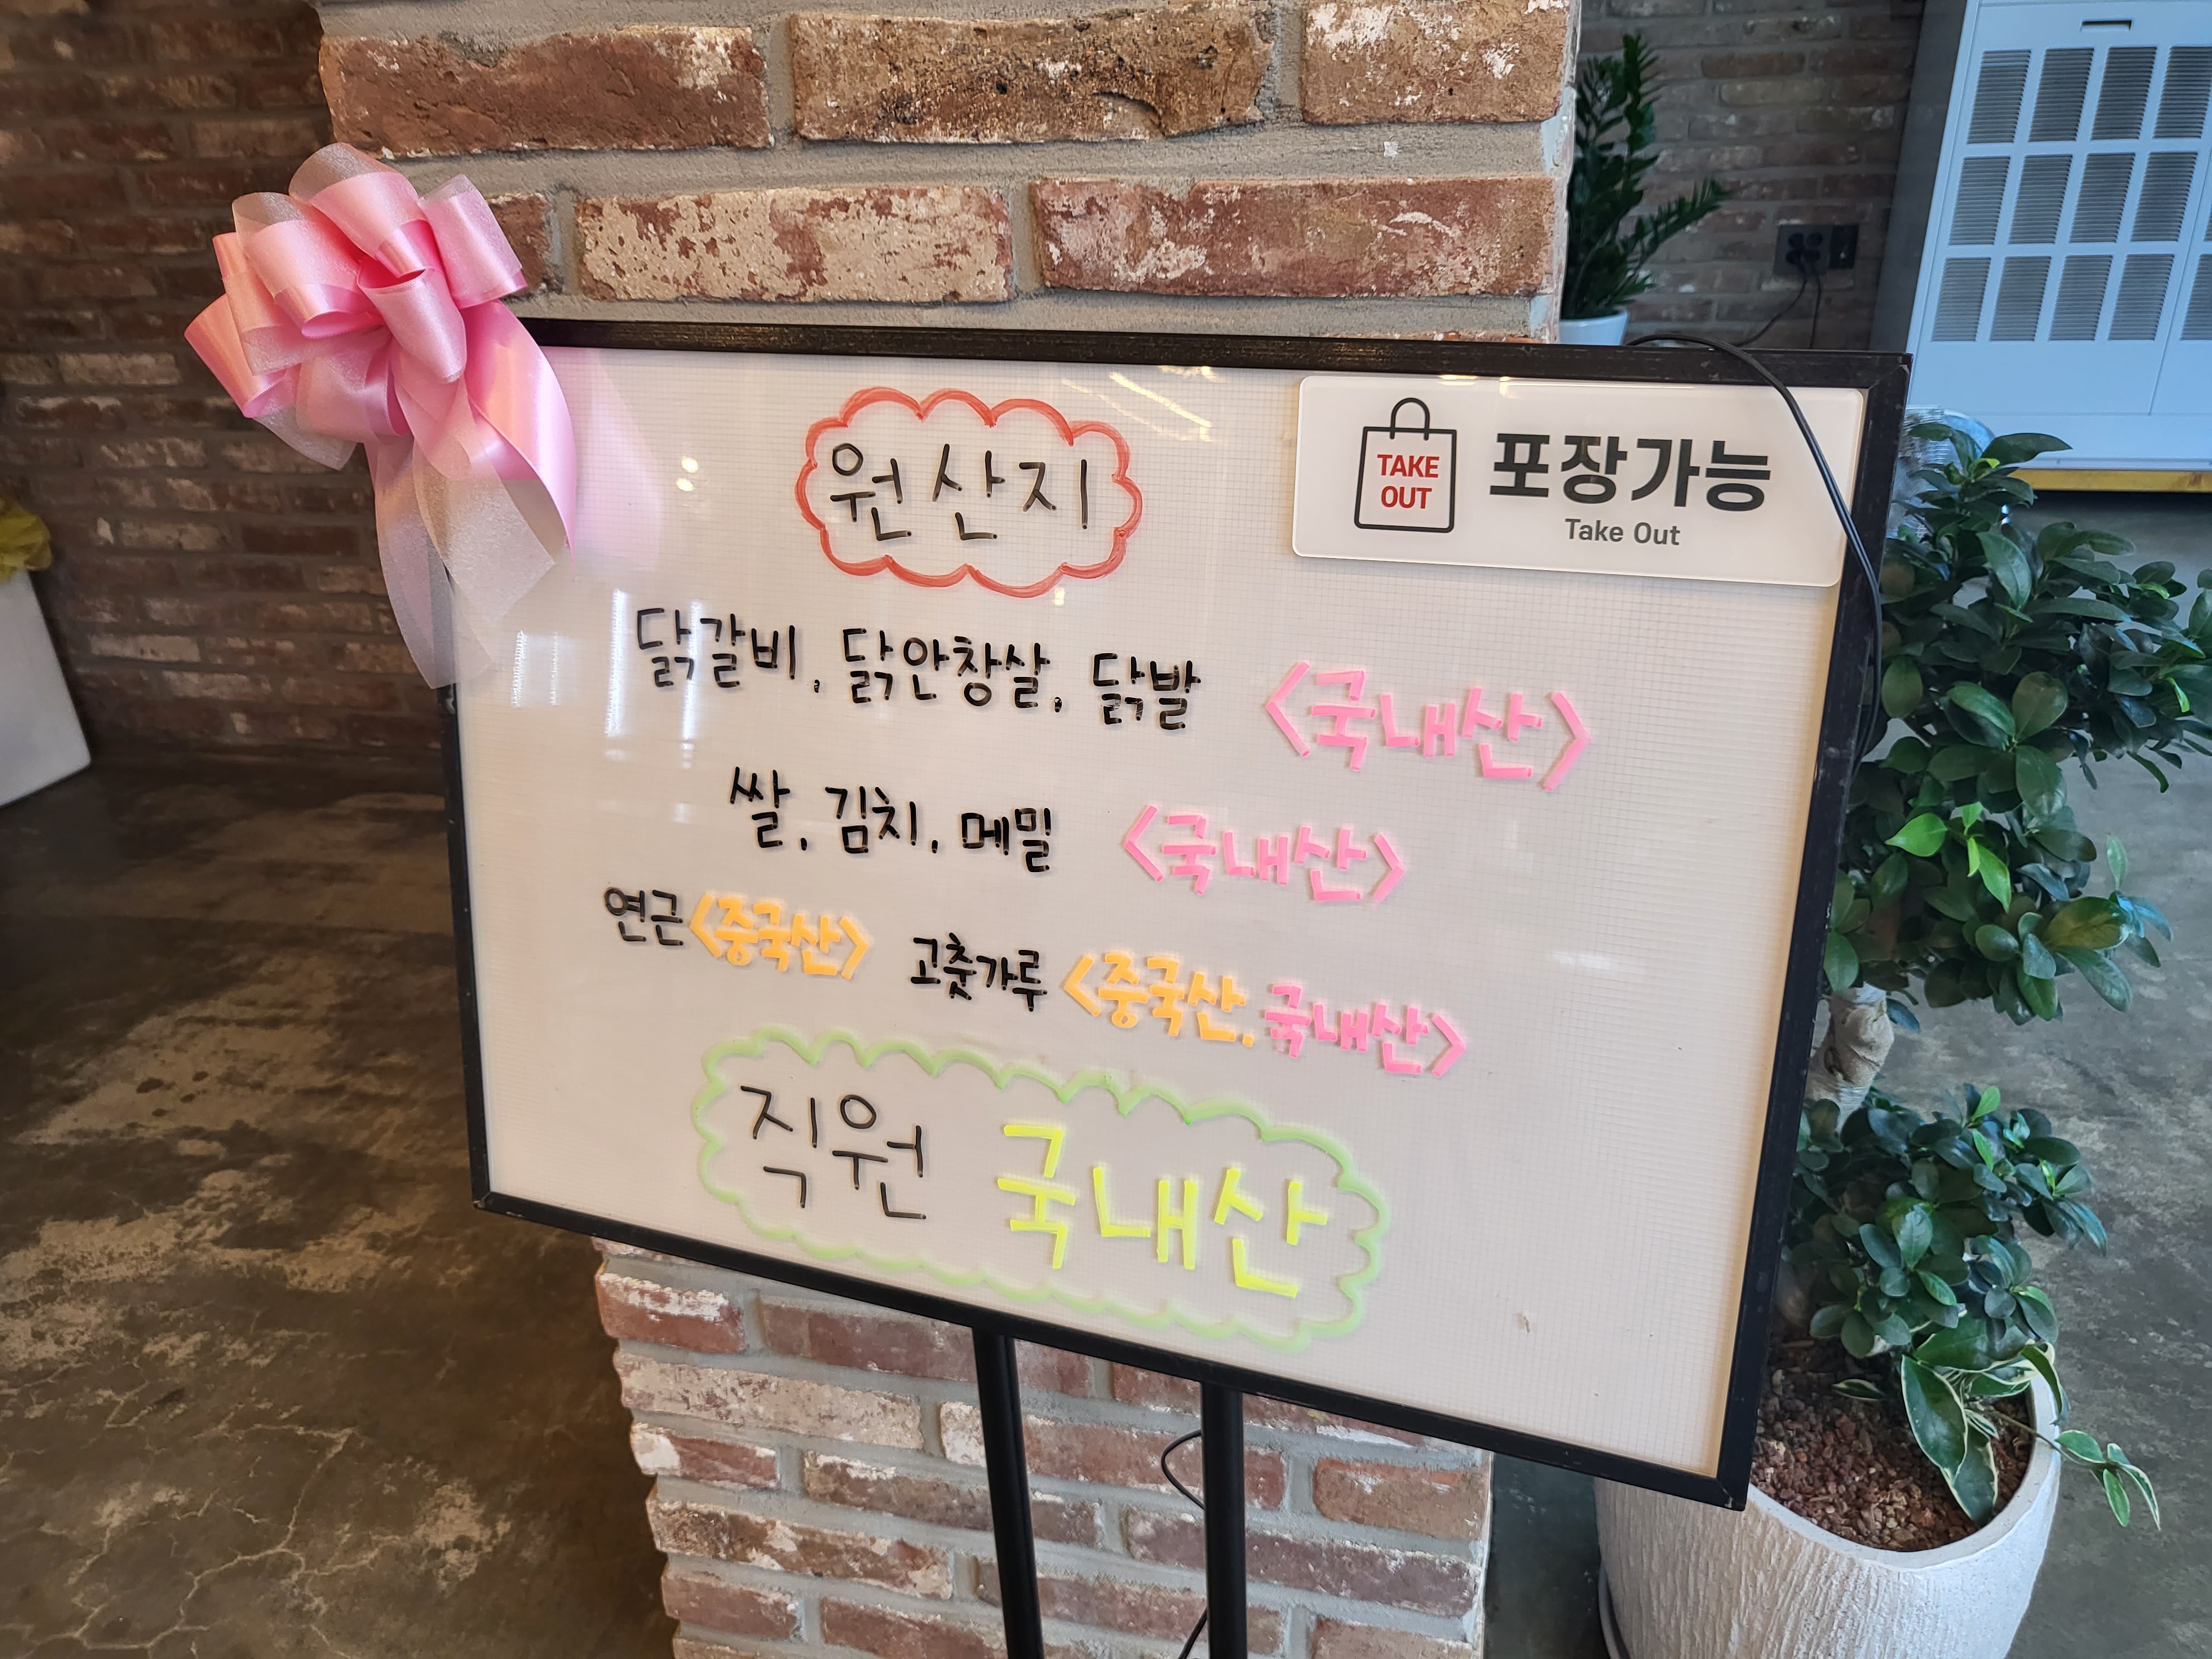 원산지
TAKE
OUT
포장가능
Take Out
닭갈비, 닭안창살, 닭발 <국내산>
쌀, 김치, 메밀 <국내산>
연근<중국산> 고춧가루 <중국산, 국내산>
직원 국내산